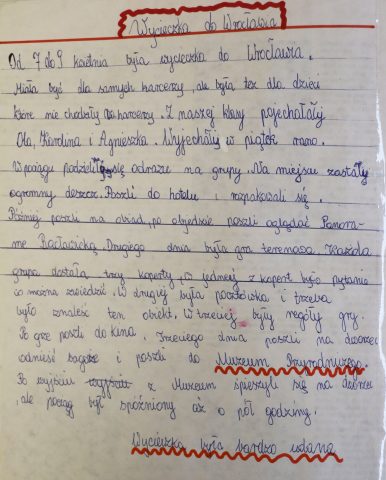 Wycieczka do Wrocławia
Od 7 do 9 kwietnia była wycieczka do Wrocławia.
Miała być dla samych harcerzy, ale była też dla dzieci
które nie chodziły do harcerzy. Z naszej klasy pojechałały
Ola, Karolina i Agnieszka. Wyjechałały w piątek rano.
W pociągu podzielili się odrazu na grupy. Na miejscu zastały
ogromny deszcz. Poszli do hotelu i rozpakowali się.
Później poszli na obiad, po objedzie poszli oglądać Panora-
me Racławicką. Drugiego dnia była gra terenowa. Każda
grupa dostała trzy koperty, w jednej z kopert było pytanie
co można zwiedzić. W drugiej była pocztówka i trzeba
było znaleść ten obiekt. W trzeciej były reguły gry.
Po grze poszli do kina. Trzeciego dnia poszli na dworzec
odnieść bagaże i poszli do Muzeum Przyrodniczego.
Po wyjściu z Muzeum śpieszyli się na dworzec
, ale pociąg był spóźniony aż o pół godziny.
Wycieczka była bardzo udana